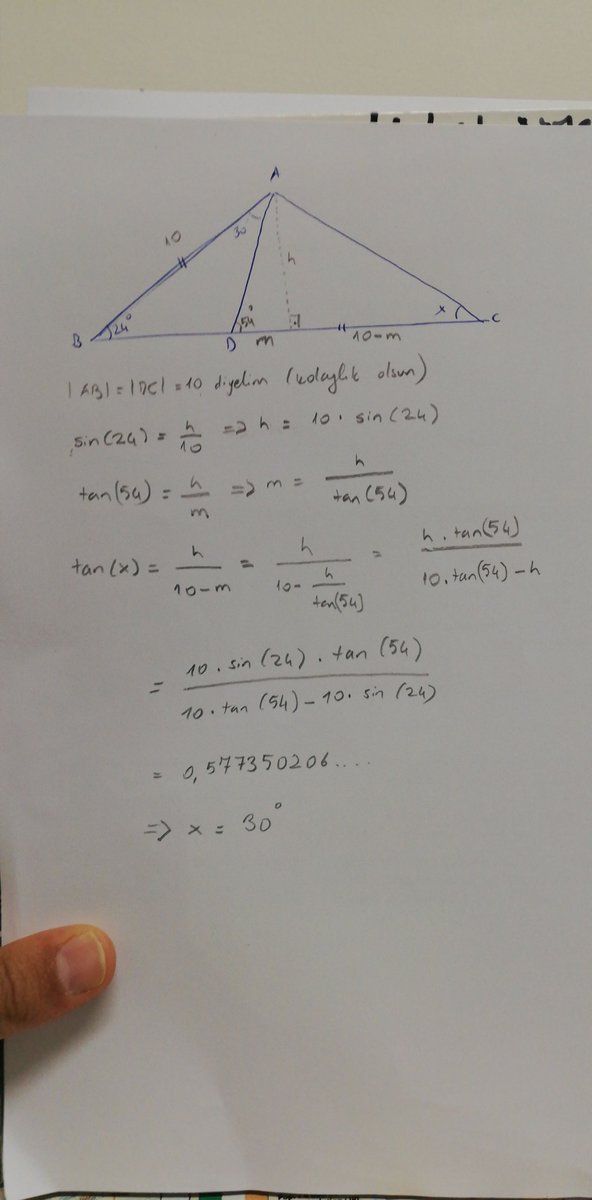 A
10
30
h
B
24°
D
54°
m
10-m
x
C
|AB| = |DC| = 10 diyelim (kolaylık olsun)
sin(24) = h/10 => h = 10 · sin(24)
tan(54) = h/m => m = h/tan(54)
tan(x) = h/(10-m) = h/(10 - h/tan(54)) = h · tan(54)/(10 · tan(54) - h)
= 10 · sin(24) · tan(54)/(10 · tan(54) - 10 · sin(24))
= 0,577350206....
=> x = 30°